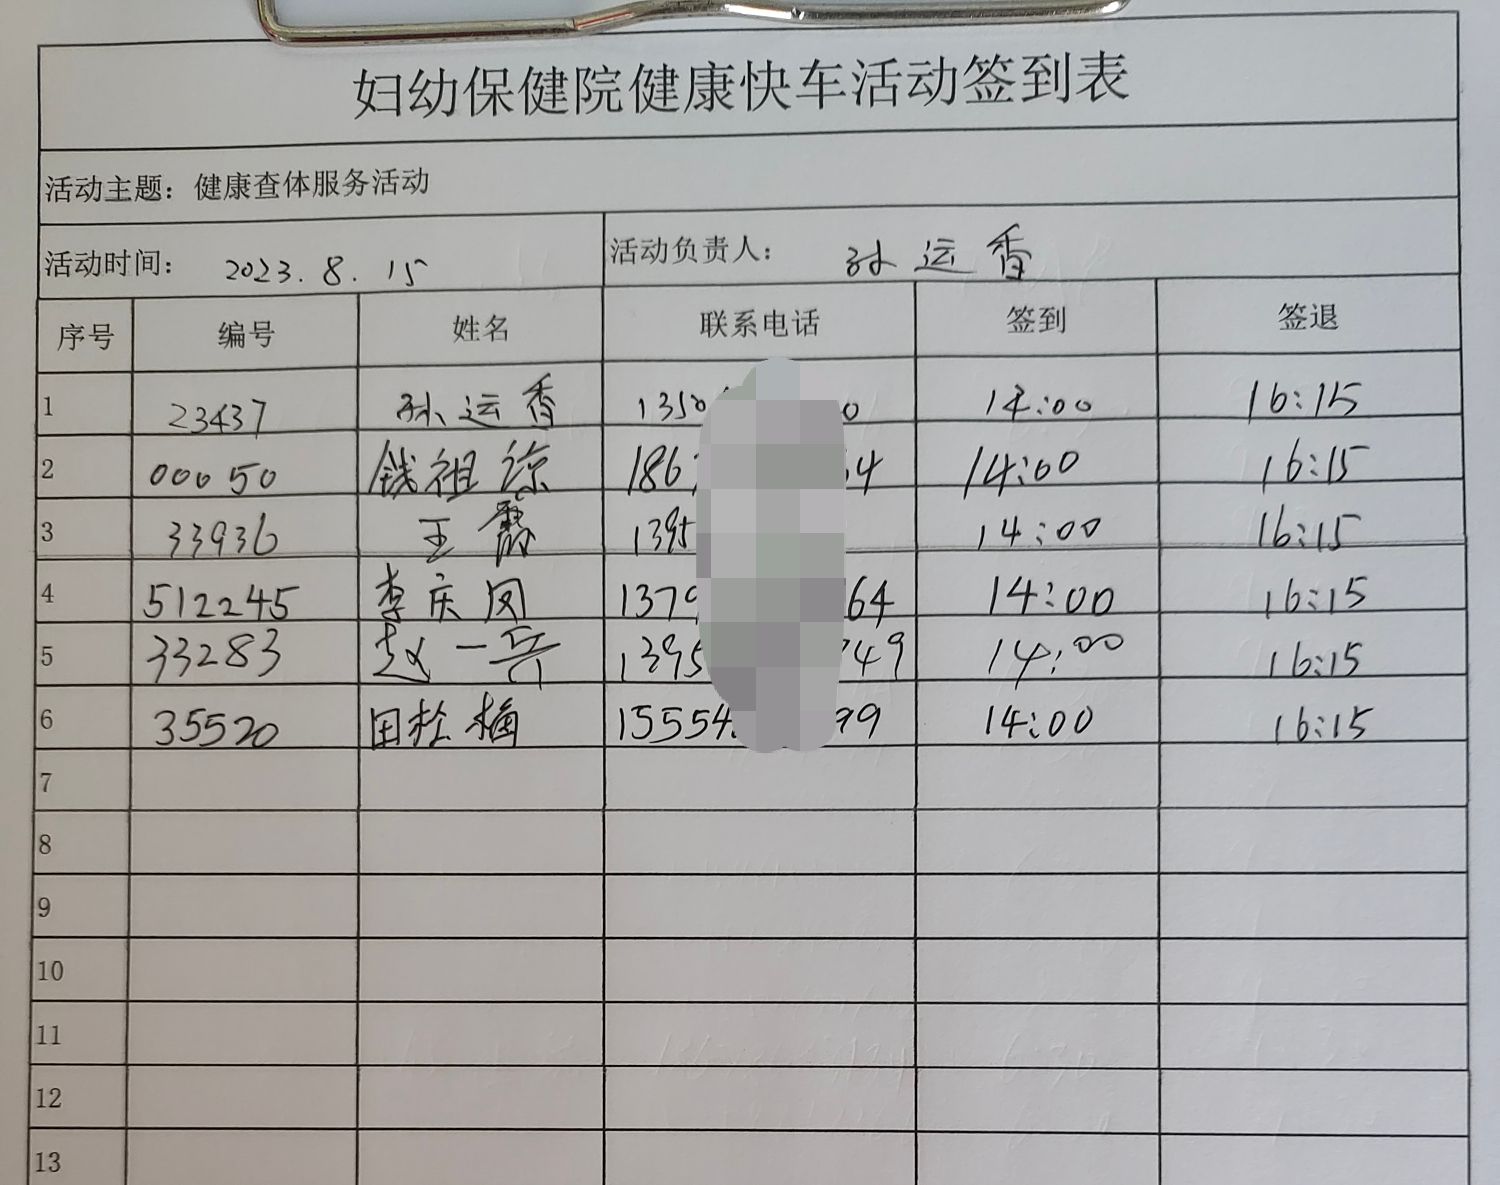 妇幼保健院健康快车活动签到表
活动主题：健康查体服务活动
活动时间： 2023.8.15 活动负责人： 孙运香
序号 编号 姓名 联系电话 签到 签退
1 23437 孙运香 1350 0 14:00 16:15
2 00050 钱祖谅 186 4 14:00 16:15
3 33936 王霞 1395 14:00 16:15
4 512245 李庆凤 1379 64 14:00 16:15
5 33283 赵一兵 1395 749 14:00 16:15
6 35520 田拴梅 15554 99 14:00 16:15
7
8
9
10
11
12
13